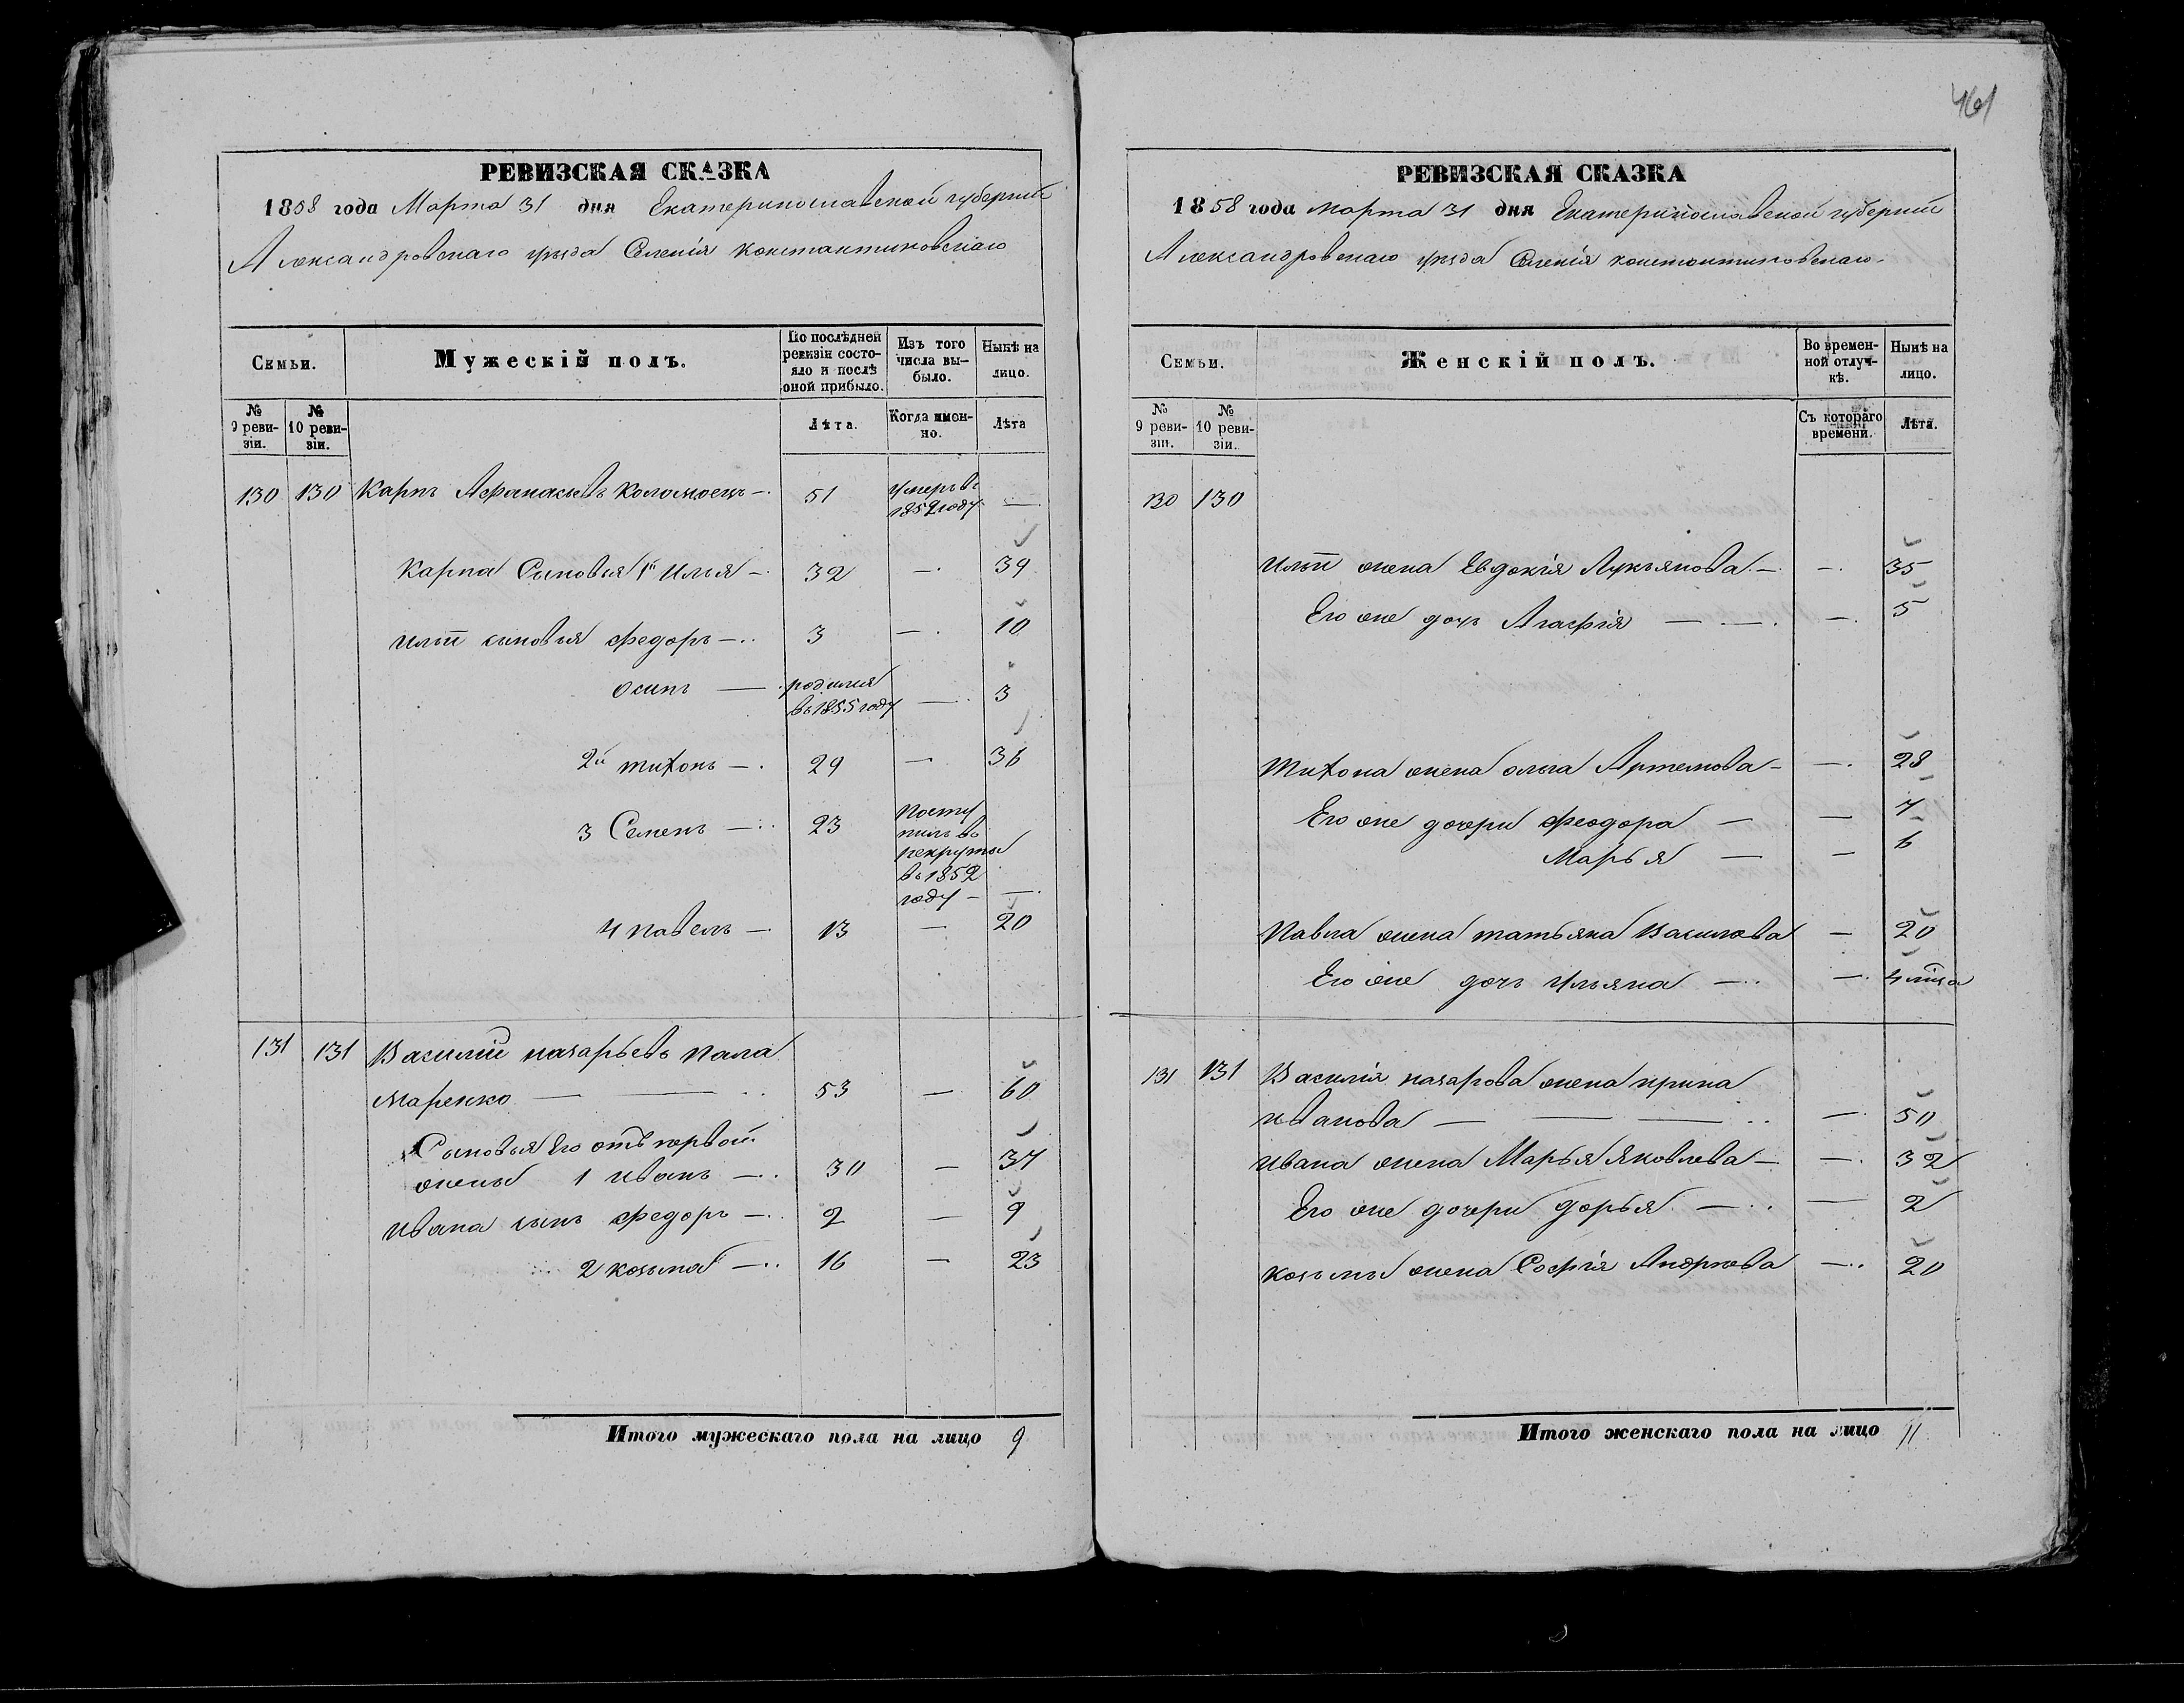 461
РЕВИЗСКАЯ СКАЗКА
1858 года Марта 31 дня Екатеринославской губернии
Александровскаго уезда Селенія Константиновскаго
Семьи.
Мужескій полъ.
По послѣдней ревизіи состояло и послѣ оной прибыло.
Изъ того числа выбыло.
Нынѣ на лицо.
№ 9 ревизіи.
№ 10 ревизіи.
Лѣта.
Когда именно.
Лѣта
130 130 Карпъ Афанасьевъ Коломоецъ — 51 умеръ въ 1852 году —
Карпа Сыновья 1й Илья — 32 — 39
Ильи сыновья Федоръ — 3 — 10
Осипъ — родился въ 1855 году — 3
2й Тихонъ — 29 — 36
3 Семенъ — 23 Поступилъ въ рекруты въ 1852 году — —
4 Павелъ — 13 — 20
131 131 Василий Назарьевъ Пала
Маренко — — 53 — 60
Сыновья Его отъ первой
жены 1 Иванъ — 30 — 37
Ивана сынъ Федоръ — 2 — 9
2 Козьма — 16 — 23
Итого мужескаго пола на лицо 9
РЕВИЗСКАЯ СКАЗКА
1858 года Марта 31 дня Екатеринославской губернии
Александровскаго уезда Селенія Константиновскаго
Семьи.
Женскій полъ.
Во временной отлучкѣ.
Нынѣ на лицо.
№ 9 ревизіи.
№ 10 ревизіи.
Съ котораго времени.
Лѣта.
130 130
Ильи жена Евдокія Лукьянова — — 35
Его же дочь Агафія — — — 5
Тихона жена Ольга Артемова — — 28
Его же дочери Феодора — — 7
Марья — — 6
Павла жена Татьяна Василева — 20
Его же дочь Ульяна — — 4 мца
131 131 Василія Назарова жена Ирина
Иванова — — — — 50
Ивана жена Марья Яковлева — — 32
Его же дочери Дарья — — 2
Козьмы жена Софія Андреева — 20
Итого женскаго пола на лицо 11